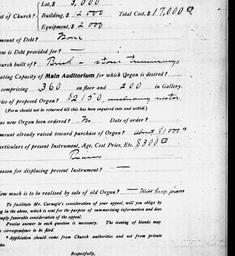 Lot, $ 3,000
ost of Church? Building, $ 12000 Total Cost, $ 17,000
Equipment, $ 2000
mount of Debt? None
ow is Debt provided for?
hurch built of? Brick & stone trimmings
ating Capacity of Main Auditorium for which Organ is desired?
comprising 360 on floor and 200 in Gallery.
rice of proposed Organ? $2150 including motor
(Form should not be returned till this has been inquired into and settled.)
as new Organ been ordered? No Date of order?
mount already raised toward purchase of Organ? About $1000
articulars of present Instrument, Age, Cost Price, Etc. $300
Piano
eason for displacing present Instrument?
ow much is to be realized by sale of old Organ? Will keep piano
To facilitate Mr. Carnegie's consideration of your appeal, will you oblige by
ing in the above, which is sent for the purpose of summarizing information and does
imply favorable consideration of the appeal.
Precise answer to each question is necessary. The leaving of blanks may
correspondence to be filed.
* Application should come from Church authorities and not from private
Respectfully,